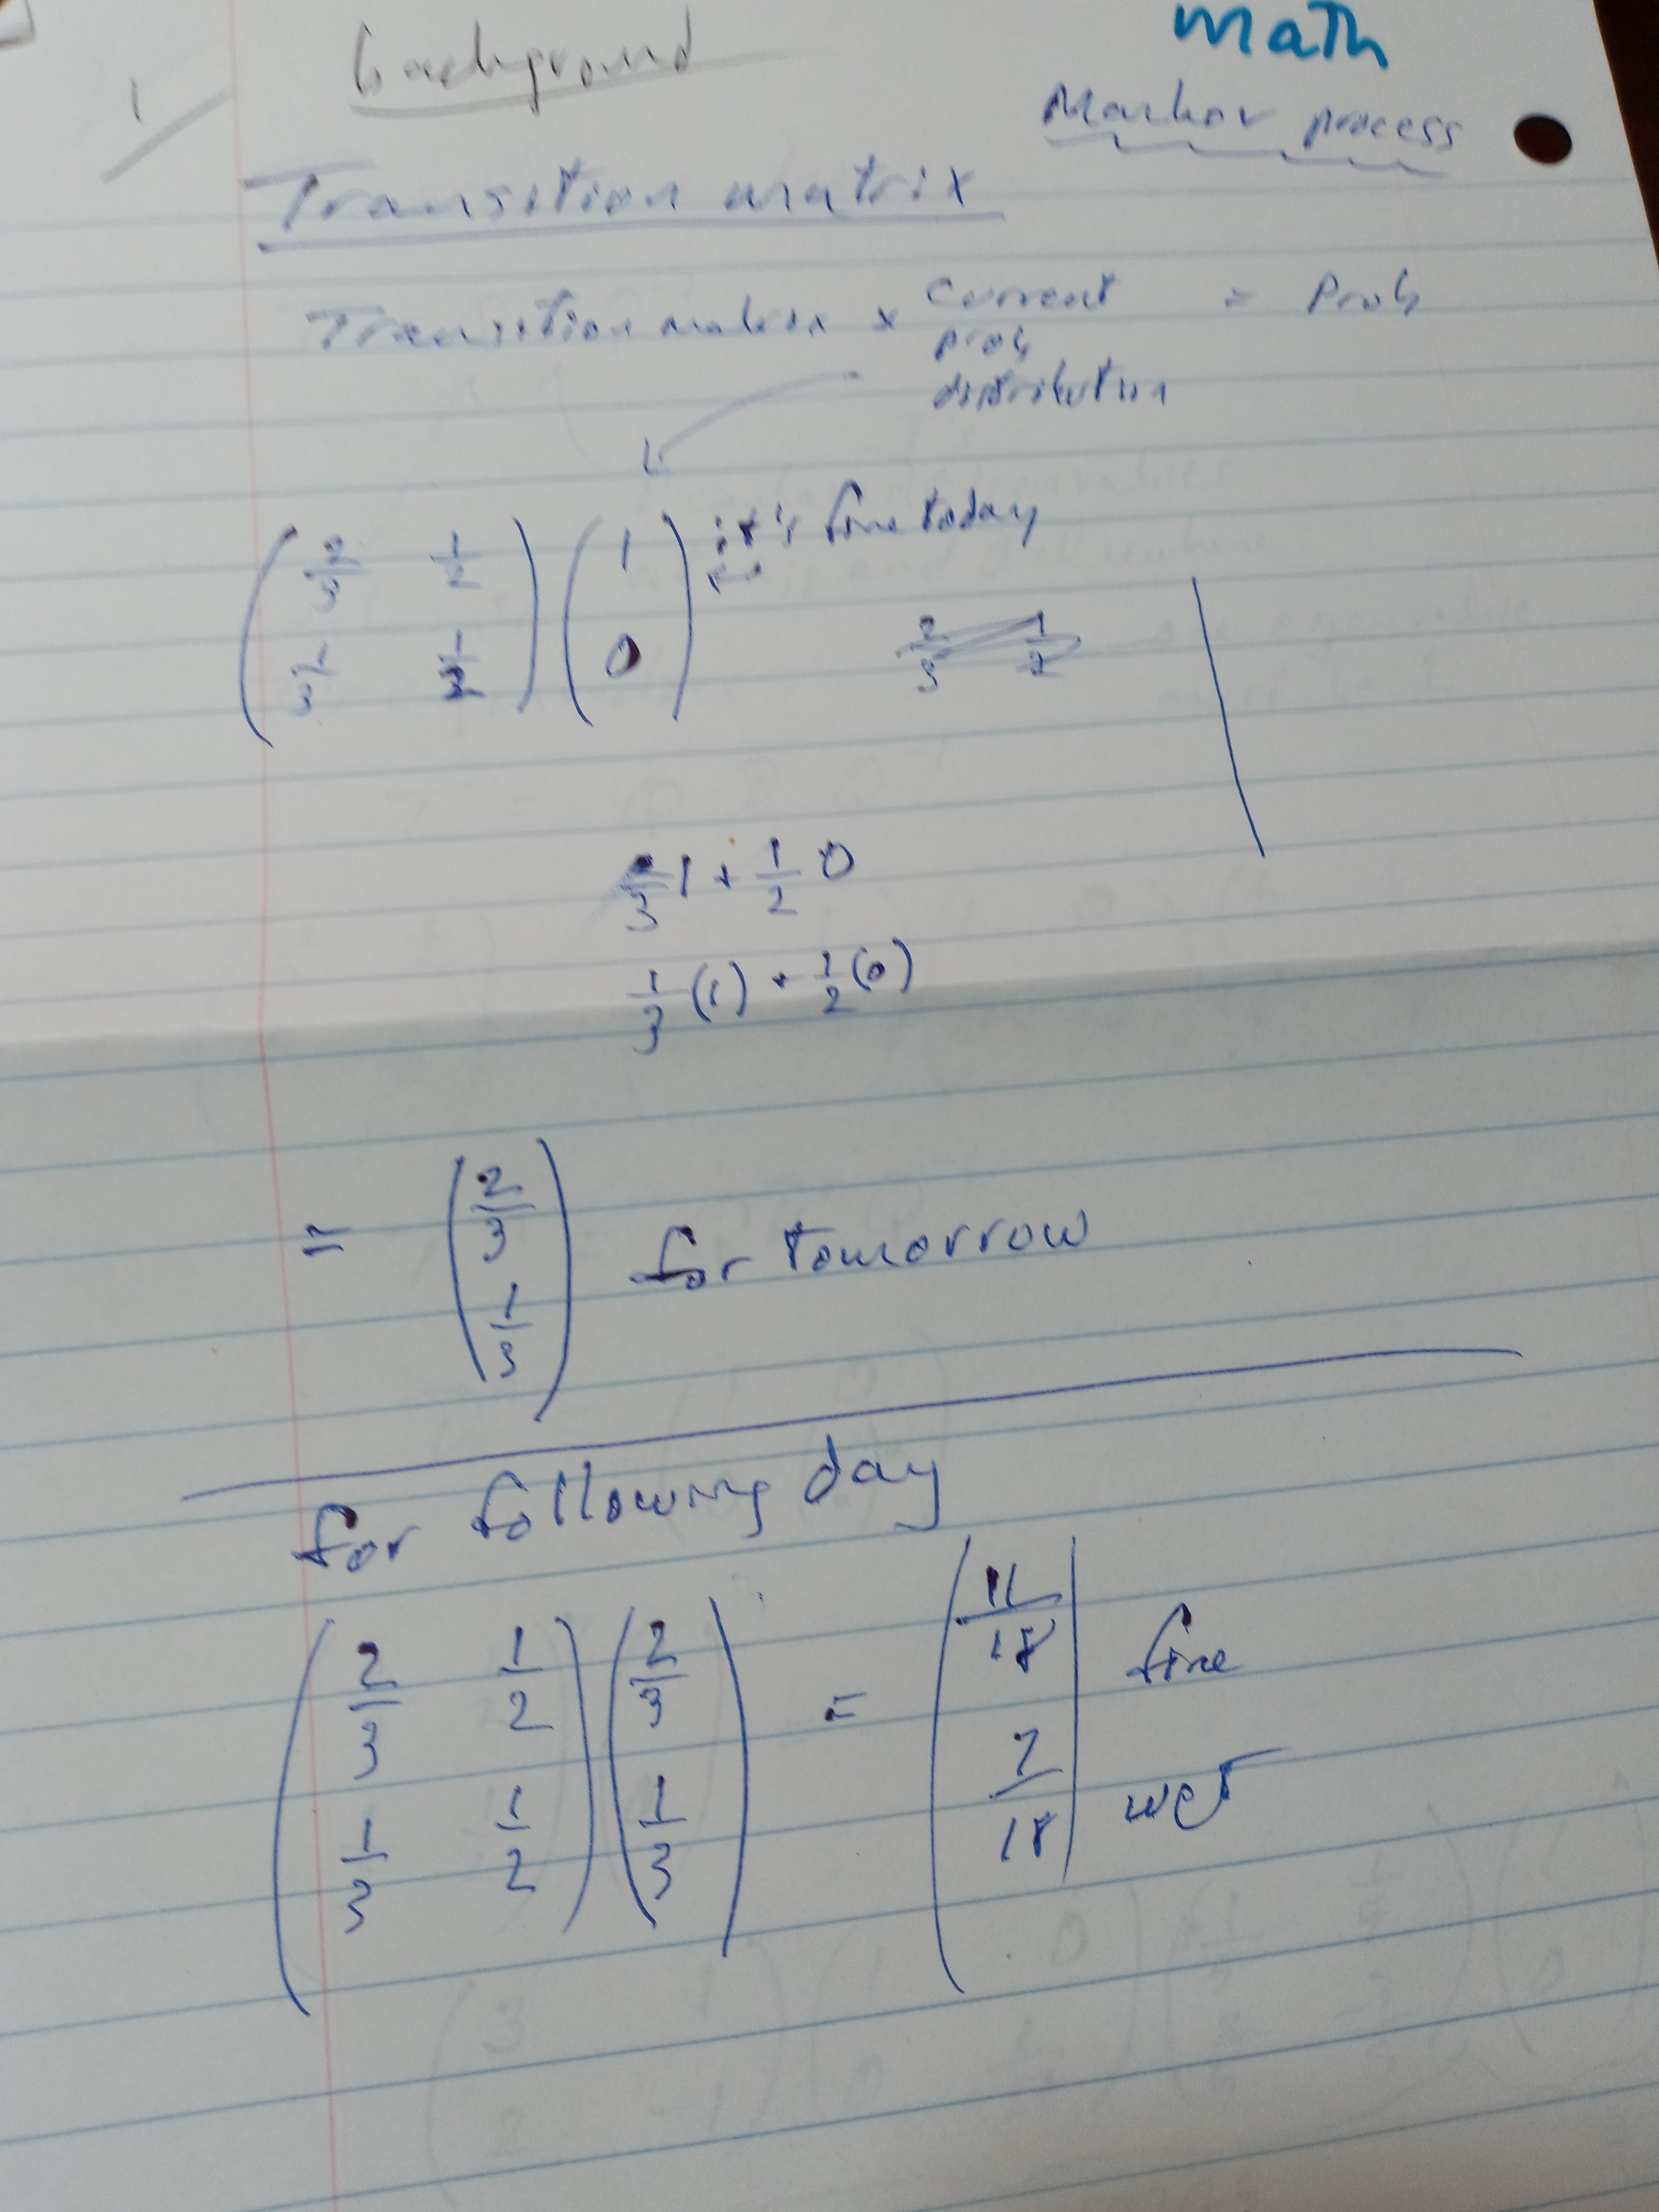 1 background math
Markov process
Transition matrix
Transition matrix × current = Prob
prob
distribution
( 2/3 1/2 ) ( 1 ) it's fine today
( 1/3 1/2 ) ( 0 )
2/3 1 + 1/2 0
1/3 (1) + 1/2 (0)
= ( 2/3 ) for tomorrow
( 1/3 )
for following day
( 2/3 1/2 ) ( 2/3 ) = ( 11/18 ) fine
( 1/3 1/2 ) ( 1/3 ) ( 7/18 ) wet